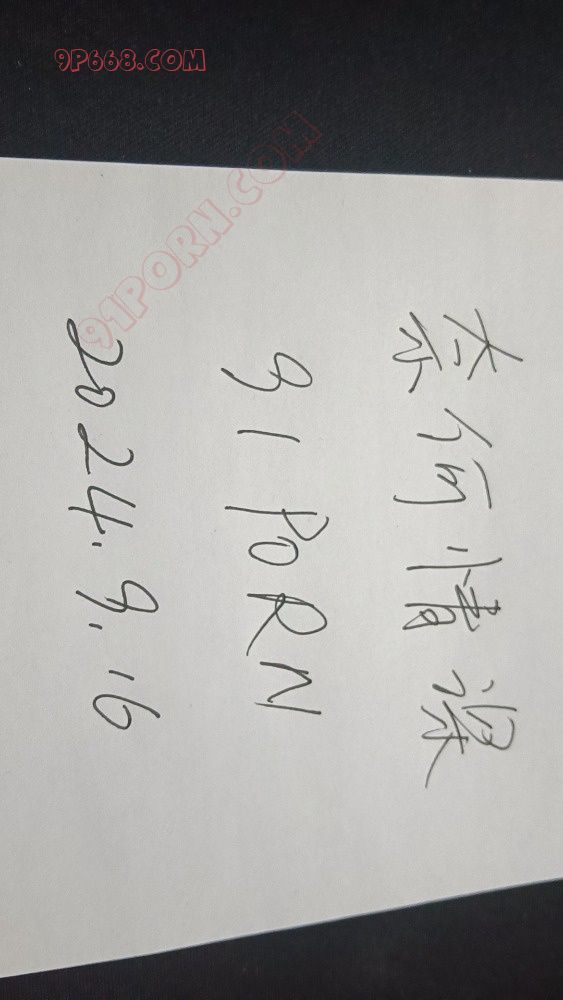 9P668.COM
91PORN.COM
奈何情深
91 PORN
2024.9.16